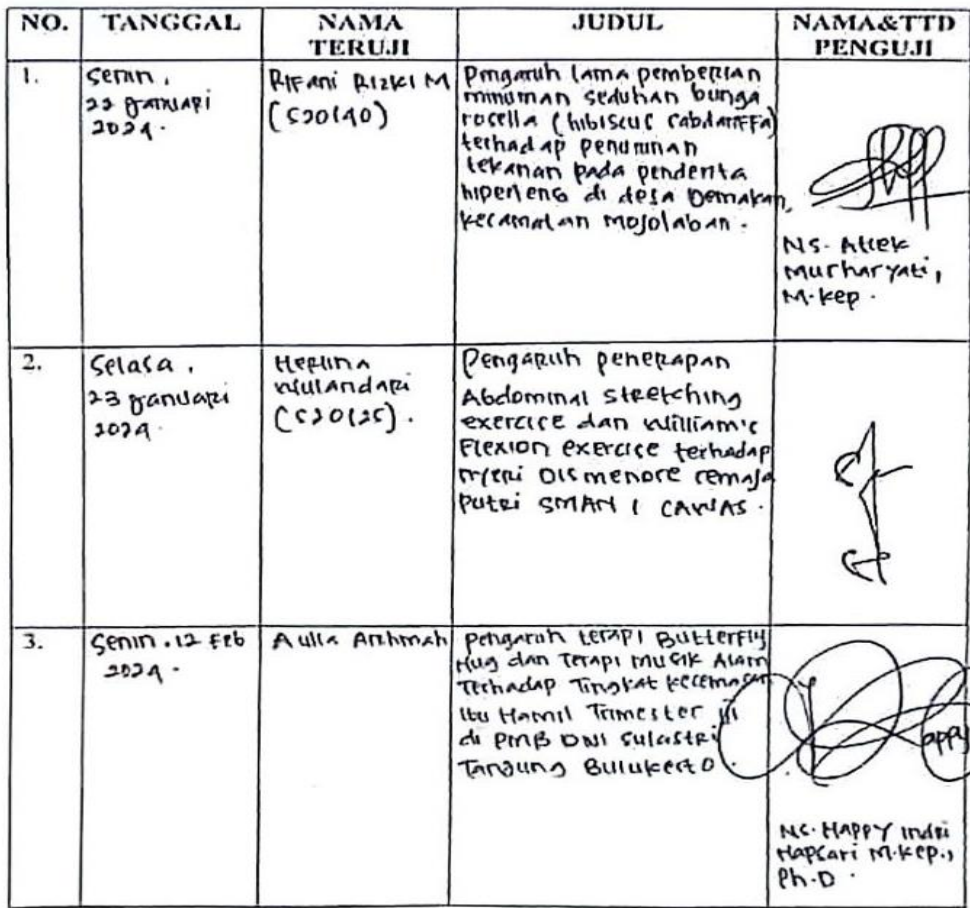 NO.
TANGGAL
NAMA
TERUJI
JUDUL
NAMA&TTD
PENGUJI
1.
Senin,
22 Januari
2024.
Rifani Rizki M
(S20140)
Pengaruh lama pemberian
minuman seduhan bunga
rosella (hibiscus sabdariffa)
terhadap penurunan
tekanan pada penderita
hipertensi di desa Demakan,
kecamatan mojolaban.
Ns. Atiek
Murharyati,
M.kep.
2.
Selasa,
23 Januari
2024.
Herlina
Wulandari
(S20125).
Pengaruh penerapan
Abdominal stretching
exercise dan William's
Flexion exercise terhadap
nyeri Dismenore remaja
Putri SMAN 1 CAWAS.
3.
Senin, 12 Feb
2024.
Aulia
Pengaruh terapi Butterfly
Hug dan Terapi musik Alam
Terhadap Tingkat kecemasan
Ibu Hamil Trimester III
di PMB DWI Sulastri
Tanjung Bulukerto.
appy
Ns. Happy Indri
Hapsari M.kep.,
Ph.D.